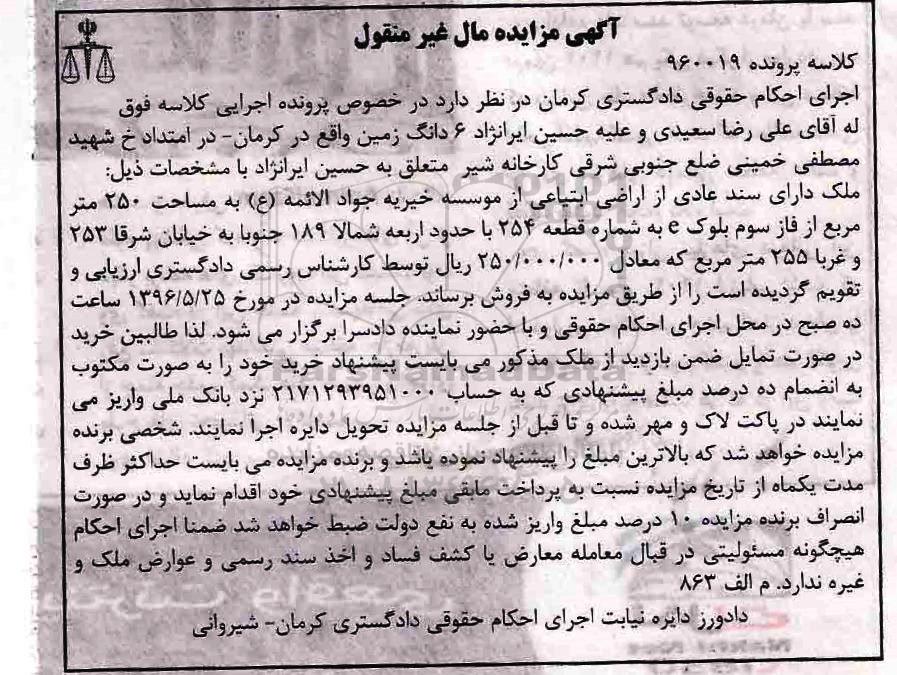 آگهی مزایده مال غیر منقول
کلاسه پرونده ۹۶۰۰۱۹
اجرای احکام حقوقی دادگستری کرمان در نظر دارد در خصوص پرونده اجرایی کلاسه فوق
له آقای علی رضا سعیدی و علیه حسین ایرانژاد ۶ دانگ زمین واقع در کرمان- در امتداد خ شهید
مصطفی خمینی ضلع جنوبی شرقی کارخانه شیر متعلق به حسین ایرانژاد با مشخصات ذیل:
ملک دارای سند عادی از اراضی ابتیاعی از موسسه خیریه جواد الائمه (ع) به مساحت ۲۵۰ متر
مربع از فاز سوم بلوک e به شماره قطعه ۲۵۴ با حدود اربعه شمالا ۱۸۹ جنوبا به خیابان شرقا ۲۵۳
و غربا ۲۵۵ متر مربع که معادل ۲۵۰/۰۰۰/۰۰۰ ریال توسط کارشناس رسمی دادگستری ارزیابی و
تقویم گردیده است را از طریق مزایده به فروش برساند. جلسه مزایده در مورخ ۱۳۹۶/۵/۲۵ ساعت
ده صبح در محل اجرای احکام حقوقی و با حضور نماینده دادسرا برگزار می شود. لذا طالبین خرید
در صورت تمایل ضمن بازدید از ملک مذکور می بایست پیشنهاد خرید خود را به صورت مکتوب
به انضمام ده درصد مبلغ پیشنهادی که به حساب ۲۱۷۱۲۹۳۹۵۱۰۰۰ نزد بانک ملی واریز می
نمایند در پاکت لاک و مهر شده و تا قبل از جلسه مزایده تحویل دایره اجرا نمایند. شخصی برنده
مزایده خواهد شد که بالاترین مبلغ را پیشنهاد نموده باشد و برنده مزایده می بایست حداکثر ظرف
مدت یکماه از تاریخ مزایده نسبت به پرداخت مابقی مبلغ پیشنهادی خود اقدام نماید و در صورت
انصراف برنده مزایده ۱۰ درصد مبلغ واریز شده به نفع دولت ضبط خواهد شد ضمنا اجرای احکام
هیچگونه مسئولیتی در قبال معامله معارض یا کشف فساد و اخذ سند رسمی و عوارض ملک و
غیره ندارد. م الف ۸۶۳
دادورز دایره نیابت اجرای احکام حقوقی دادگستری کرمان- شیروانی